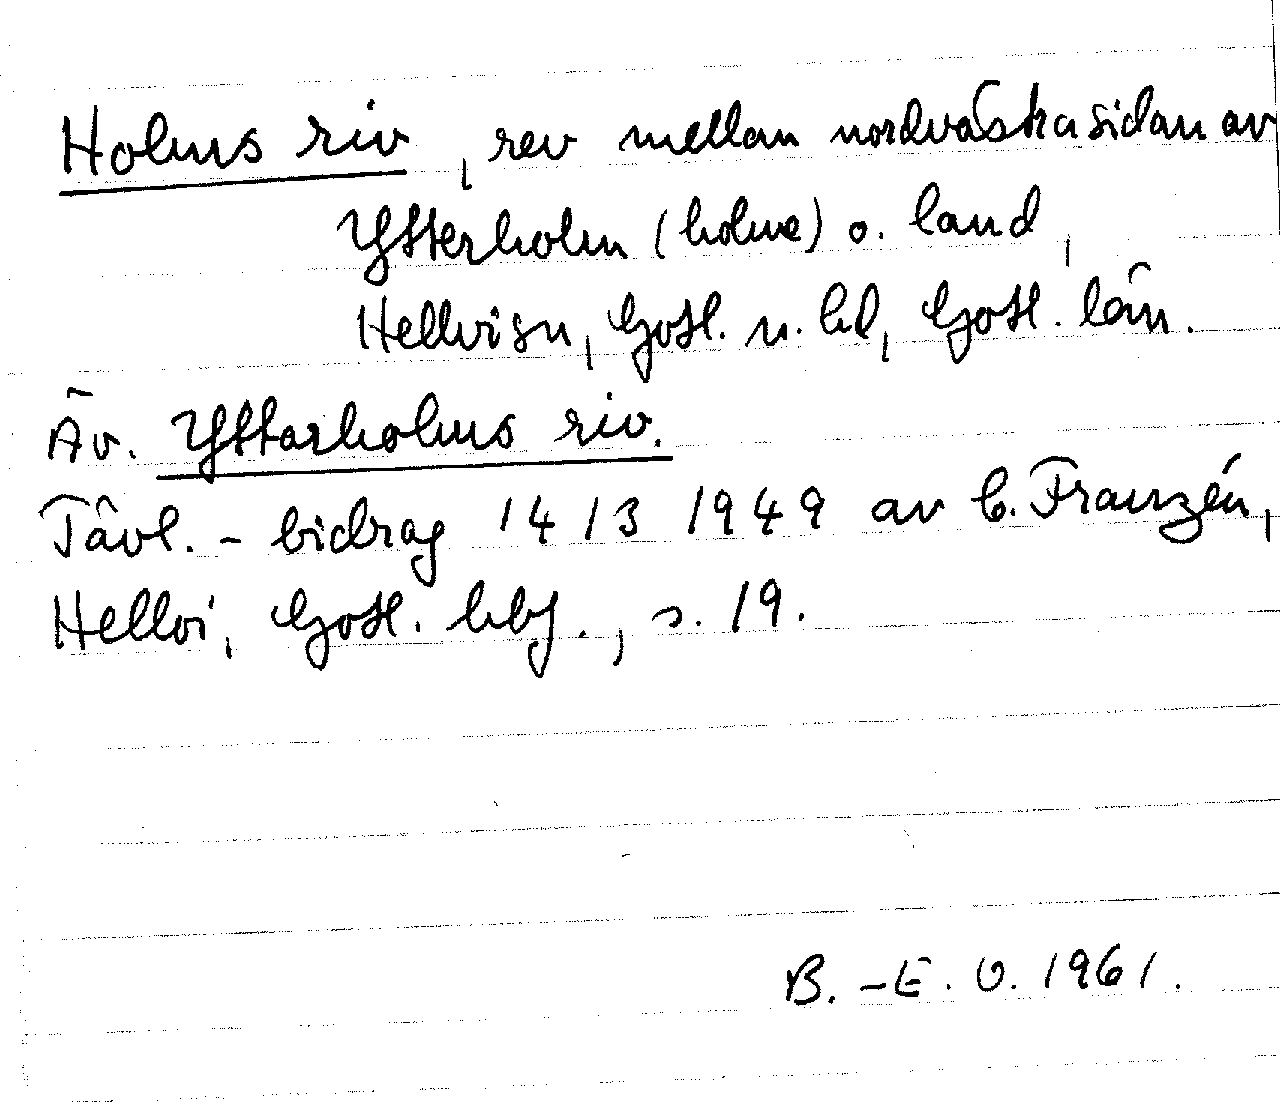 Holms riv, rev mellan nordvästra sidan av
Ytterholm (holme) o. land,
Hellvi sn, Gotl. n. hd, Gotl. län.
Äv. Yttarholms riv.
Tävl.-bidrag 14/3 1949 av G. Franzén,
Hellvi, Gotl. hbf., s. 19.
B.-E. O. 1961.